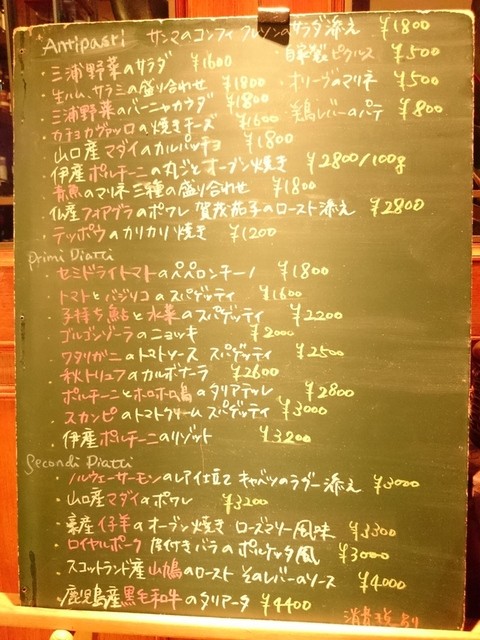 Antipasti サンマのコンフィ クレソンのサラダ添え ¥1800
・三浦野菜のサラダ ¥1600 ・自家製ピクルス ¥500
・生ハム、サラミの盛り合わせ ¥1800 ・オリーブのマリネ ¥500
・三浦野菜のバーニャカウダ ¥1800 ・鶏レバーのパテ ¥800
・カチョカヴァッロの焼きチーズ ¥1600
・山口産マダイのカルパッチョ ¥1800
・伊産ポルチーニの丸ごとオーブン焼き ¥2800/100g
・青魚のマリネ三種の盛り合わせ ¥1800
・仏産フォアグラのポワレ 賀茂茄子のロースト添え ¥2800
・テッポウのカリカリ焼き ¥1200
Primi Piatti
・セミドライトマトのペペロンチーノ ¥1800
・トマトとバジリコのスパゲッティ ¥1600
・子持ち鮎と水菜のスパゲッティ ¥2200
・ゴルゴンゾーラのニョッキ ¥2000
・ワタリガニのトマトソース スパゲッティ ¥2500
・秋トリュフのカルボナーラ ¥2600
・ポルチーニとホロホロ鳥のタリアテッレ ¥2800
・スカンピのトマトクリーム スパゲッティ ¥3000
・伊産ポルチーニのリゾット ¥3200
Secondi Piatti
・ノルウェーサーモンのレアイ仕立て キャベツのラグー添え ¥3000
・山口産マダイのポワレ ¥3200
・豪産仔羊のオーブン焼き ローズマリー風味 ¥3300
・ロイヤルポーク 骨付きバラのポルケッタ風 ¥3000
・スコットランド産山鳩のロースト そのレバーのソース ¥4000
・鹿児島産黒毛和牛のタリアータ ¥4400
消費税別